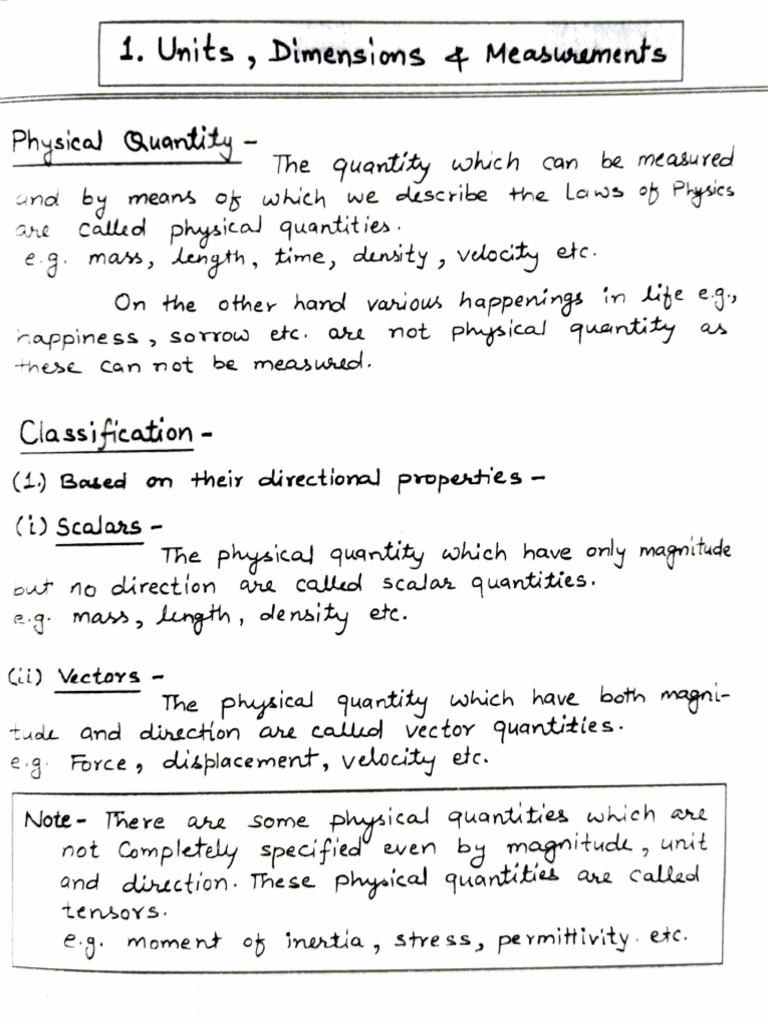 1. Units, Dimensions & Measurements
Physical Quantity -
The quantity which can be measured
and by means of which we describe the Laws of Physics
are called physical quantities.
e.g. mass, length, time, density, velocity etc.
On the other hand various happenings in life e.g.,
happiness, sorrow etc. are not physical quantity as
these can not be measured.
Classification -
(1.) Based on their directional properties -
(i) Scalars -
The physical quantity which have only magnitude
but no direction are called scalar quantities.
e.g. mass, length, density etc.
(ii) Vectors -
The physical quantity which have both magni-
tude and direction are called vector quantities.
e.g. Force, displacement, velocity etc.
Note - There are some physical quantities which are
not Completely specified even by magnitude, unit
and direction. These physical quantities are called
tensors.
e.g. moment of inertia, stress, permittivity. etc.